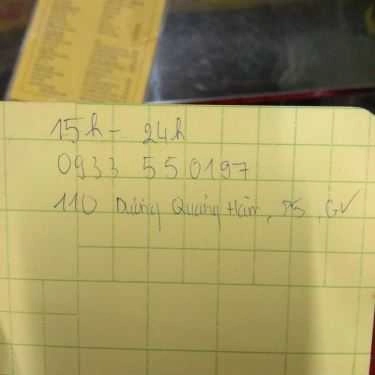 15h - 24h
0933 550197
110 Dương Quảng Hàm, P5, GV